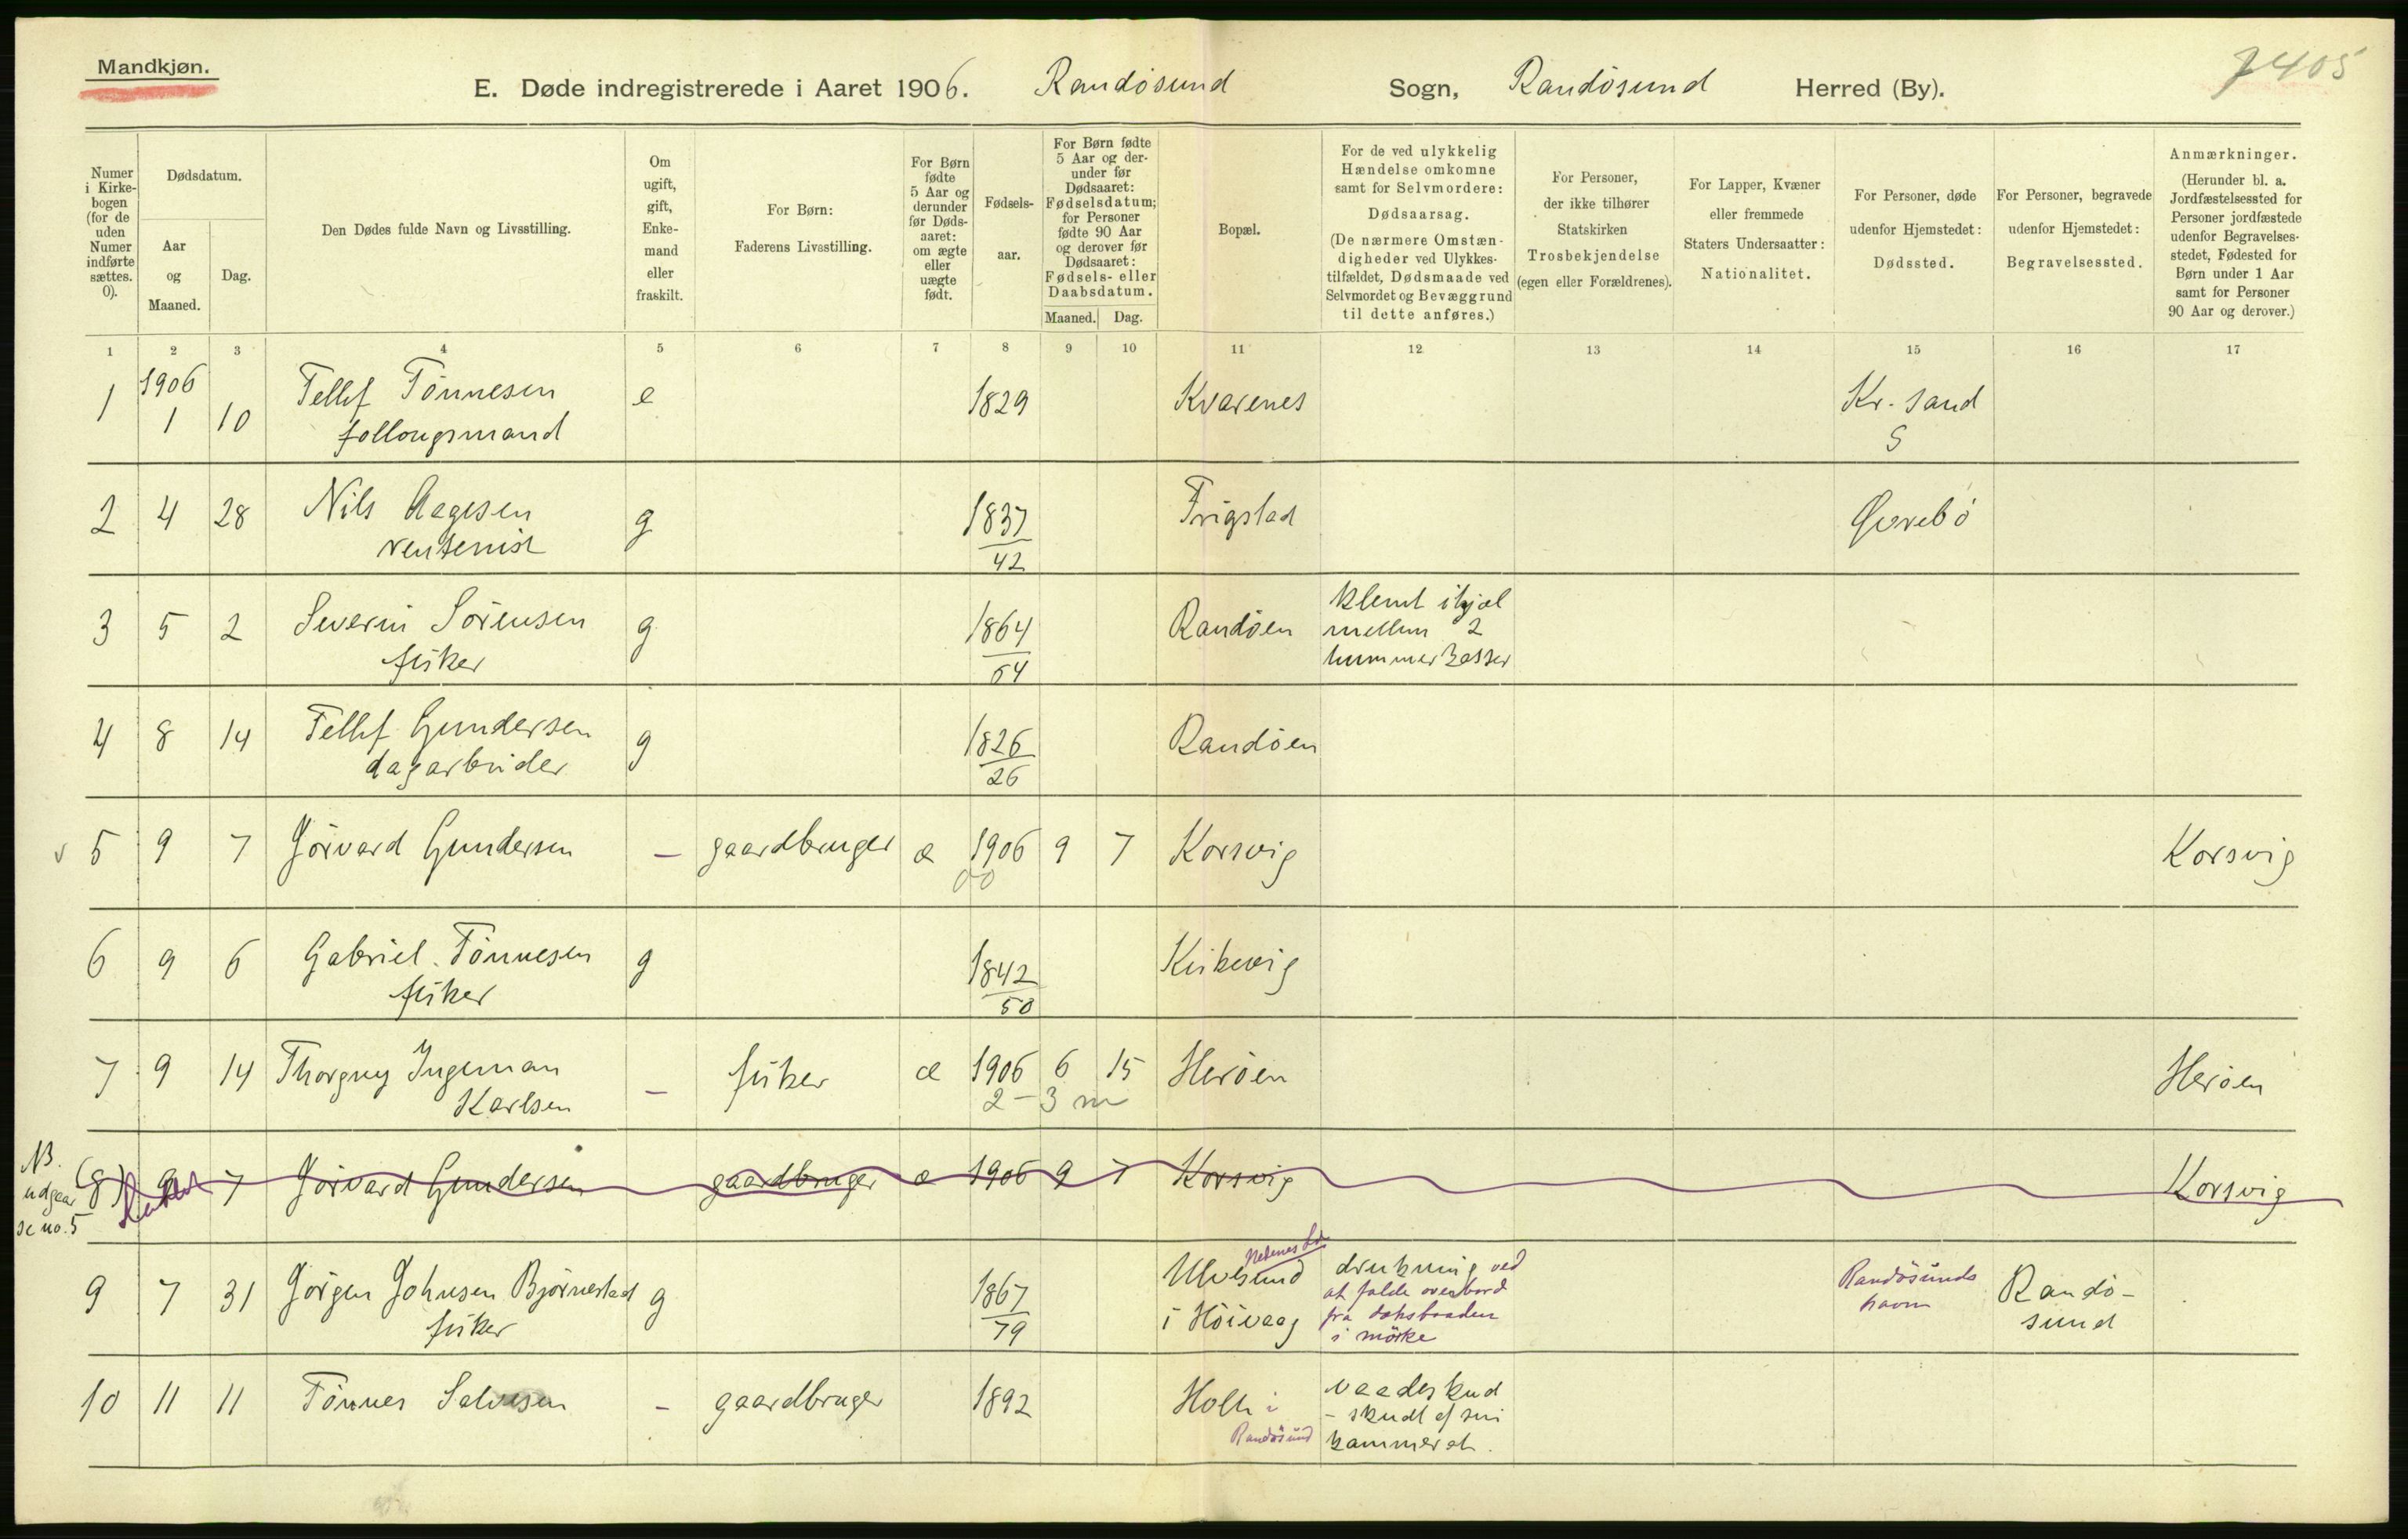 Mandkjøn.
E. Døde indregistrerede i Aaret 1906. Randösund Sogn, Randösund Herred (By).
7405
Numer i Kirkebogen (for de uden Numer indførte sættes. 0).
Dødsdatum.
Aar og Maaned.
Dag.
Den Dødes fulde Navn og Livsstilling.
Om ugift, gift, Enkemand eller fraskilt.
For Børn: Faderens Livsstilling.
For Børn fødte 5 Aar og derunder før Dødsaaret: om ægte eller uægte født.
Fødselsaar.
For Børn fødte 5 Aar og derunder før Dødsaaret: Fødselsdatum; for Personer fødte 90 Aar og derover før Dødsaaret: Fødsels- eller Daabsdatum.
Maaned. Dag.
Bopæl.
For de ved ulykkelig Hændelse omkomne samt for Selvmordere: Dødsaarsag. (De nærmere Omstændigheder ved Ulykkestilfældet, Dødsmaade ved Selvmordet og Bevæggrund til dette anføres.)
For Personer, der ikke tilhører Statskirken Trosbekjendelse (egen eller Forældrenes).
For Lapper, Kvæner eller fremmede Staters Undersaatter: Nationalitet.
For Personer, døde udenfor Hjemstedet: Dødssted.
For Personer, begravede udenfor Hjemstedet: Begravelsessted.
Anmærkninger. (Herunder bl. a. Jordfæstelsessted for Personer jordfæstede udenfor Begravelsesstedet, Fødested for Børn under 1 Aar samt for Personer 90 Aar og derover.)
1 2 3 4 5 6 7 8 9 10 11 12 13 14 15 16 17
1906
1 1 10 Tellef Tönnesen e 1829 Kvarenes Kr. sand
follougsmand S
2 4 28 Nils Aagesen g 1837 Frigstad Øvrebö
rentenist 42
3 5 2 Severin Sörensen g 1864 Randöen klemt ihjæl
fisker 64 mellem 2
hummerkasser
4 8 14 Tellef Gundersen g 1826 Randöen
dagarbeider 26
v 5 9 7 Jörvard Gundersen – gaardbruger æ 1906 9 7 Korsvig Korsvig
00
6 9 6 Gabriel Tönnesen g 1842 Kirkevig
fisker 50
7 9 14 Thorgny Ingeman – fisker æ 1906 6 15 Heröen Heröen
Karlsen 2-3 m
NB. udgaar se no. 5
(8) 9 7 Jörvard Gundersen gaardbruger æ 1906 9 7 Korsvig Korsvig
9 7 31 Jörgen Johnsen Bjørnestad g 1867 Ulvesund Nedenes drukning ved Randösunds Randö-
fisker 79 i Höivaag at falde overbord havn sund
fra
i mörke
10 11 11 Tönnes Salvesen – gaardbruger 1892 Holte i vaadeskud
Randösund - skudt af sin
kammerat.